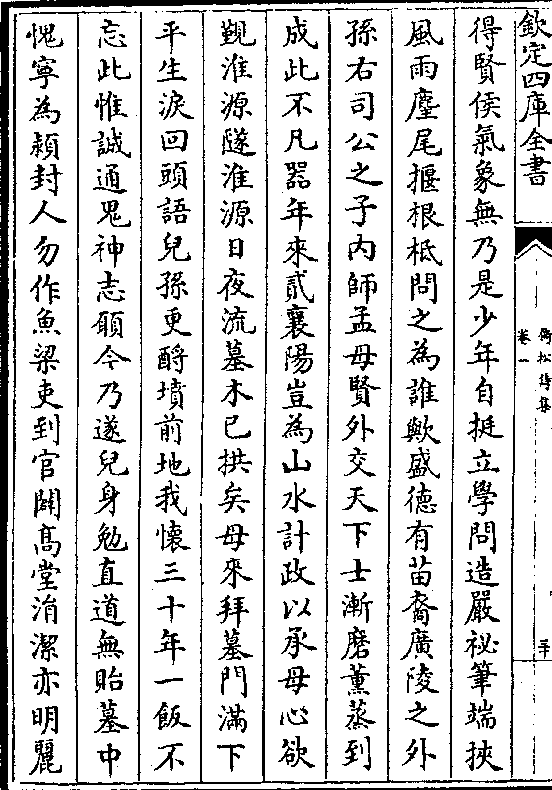 欽定四庫全書
倚松詩集
卷一
二十
得賢侯氣象無乃是少年自挺立學問造嚴祕筆端挾
風雨麈尾握根柢問之為誰歟盛德有苗裔廣陵之外
孫右司公之子内師孟母賢外交天下士漸磨薰蒸到
成此不凡器年來貳襄陽豈為山水計政以承母心欲
覲淮源隧淮源日夜流墓木已拱矣母來拜墓門滿下
平生淚回頭語兒孫更酹墳前地我懷三十年一飯不
忘此惟誠通鬼神志願今乃遂兒身勉直道無貽墓中
愧寜為潁封人勿作魚梁吏到官闢髙堂涓潔亦明麗